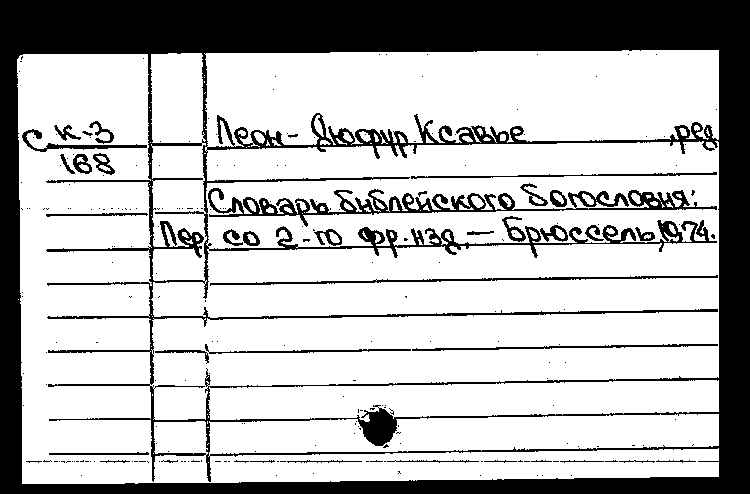 С К-3
168
Леон-Дюфур, Ксавье ,ред
Словарь библейского богословия:
Пер. со 2-го фр. изд. — Брюссель, 1974.